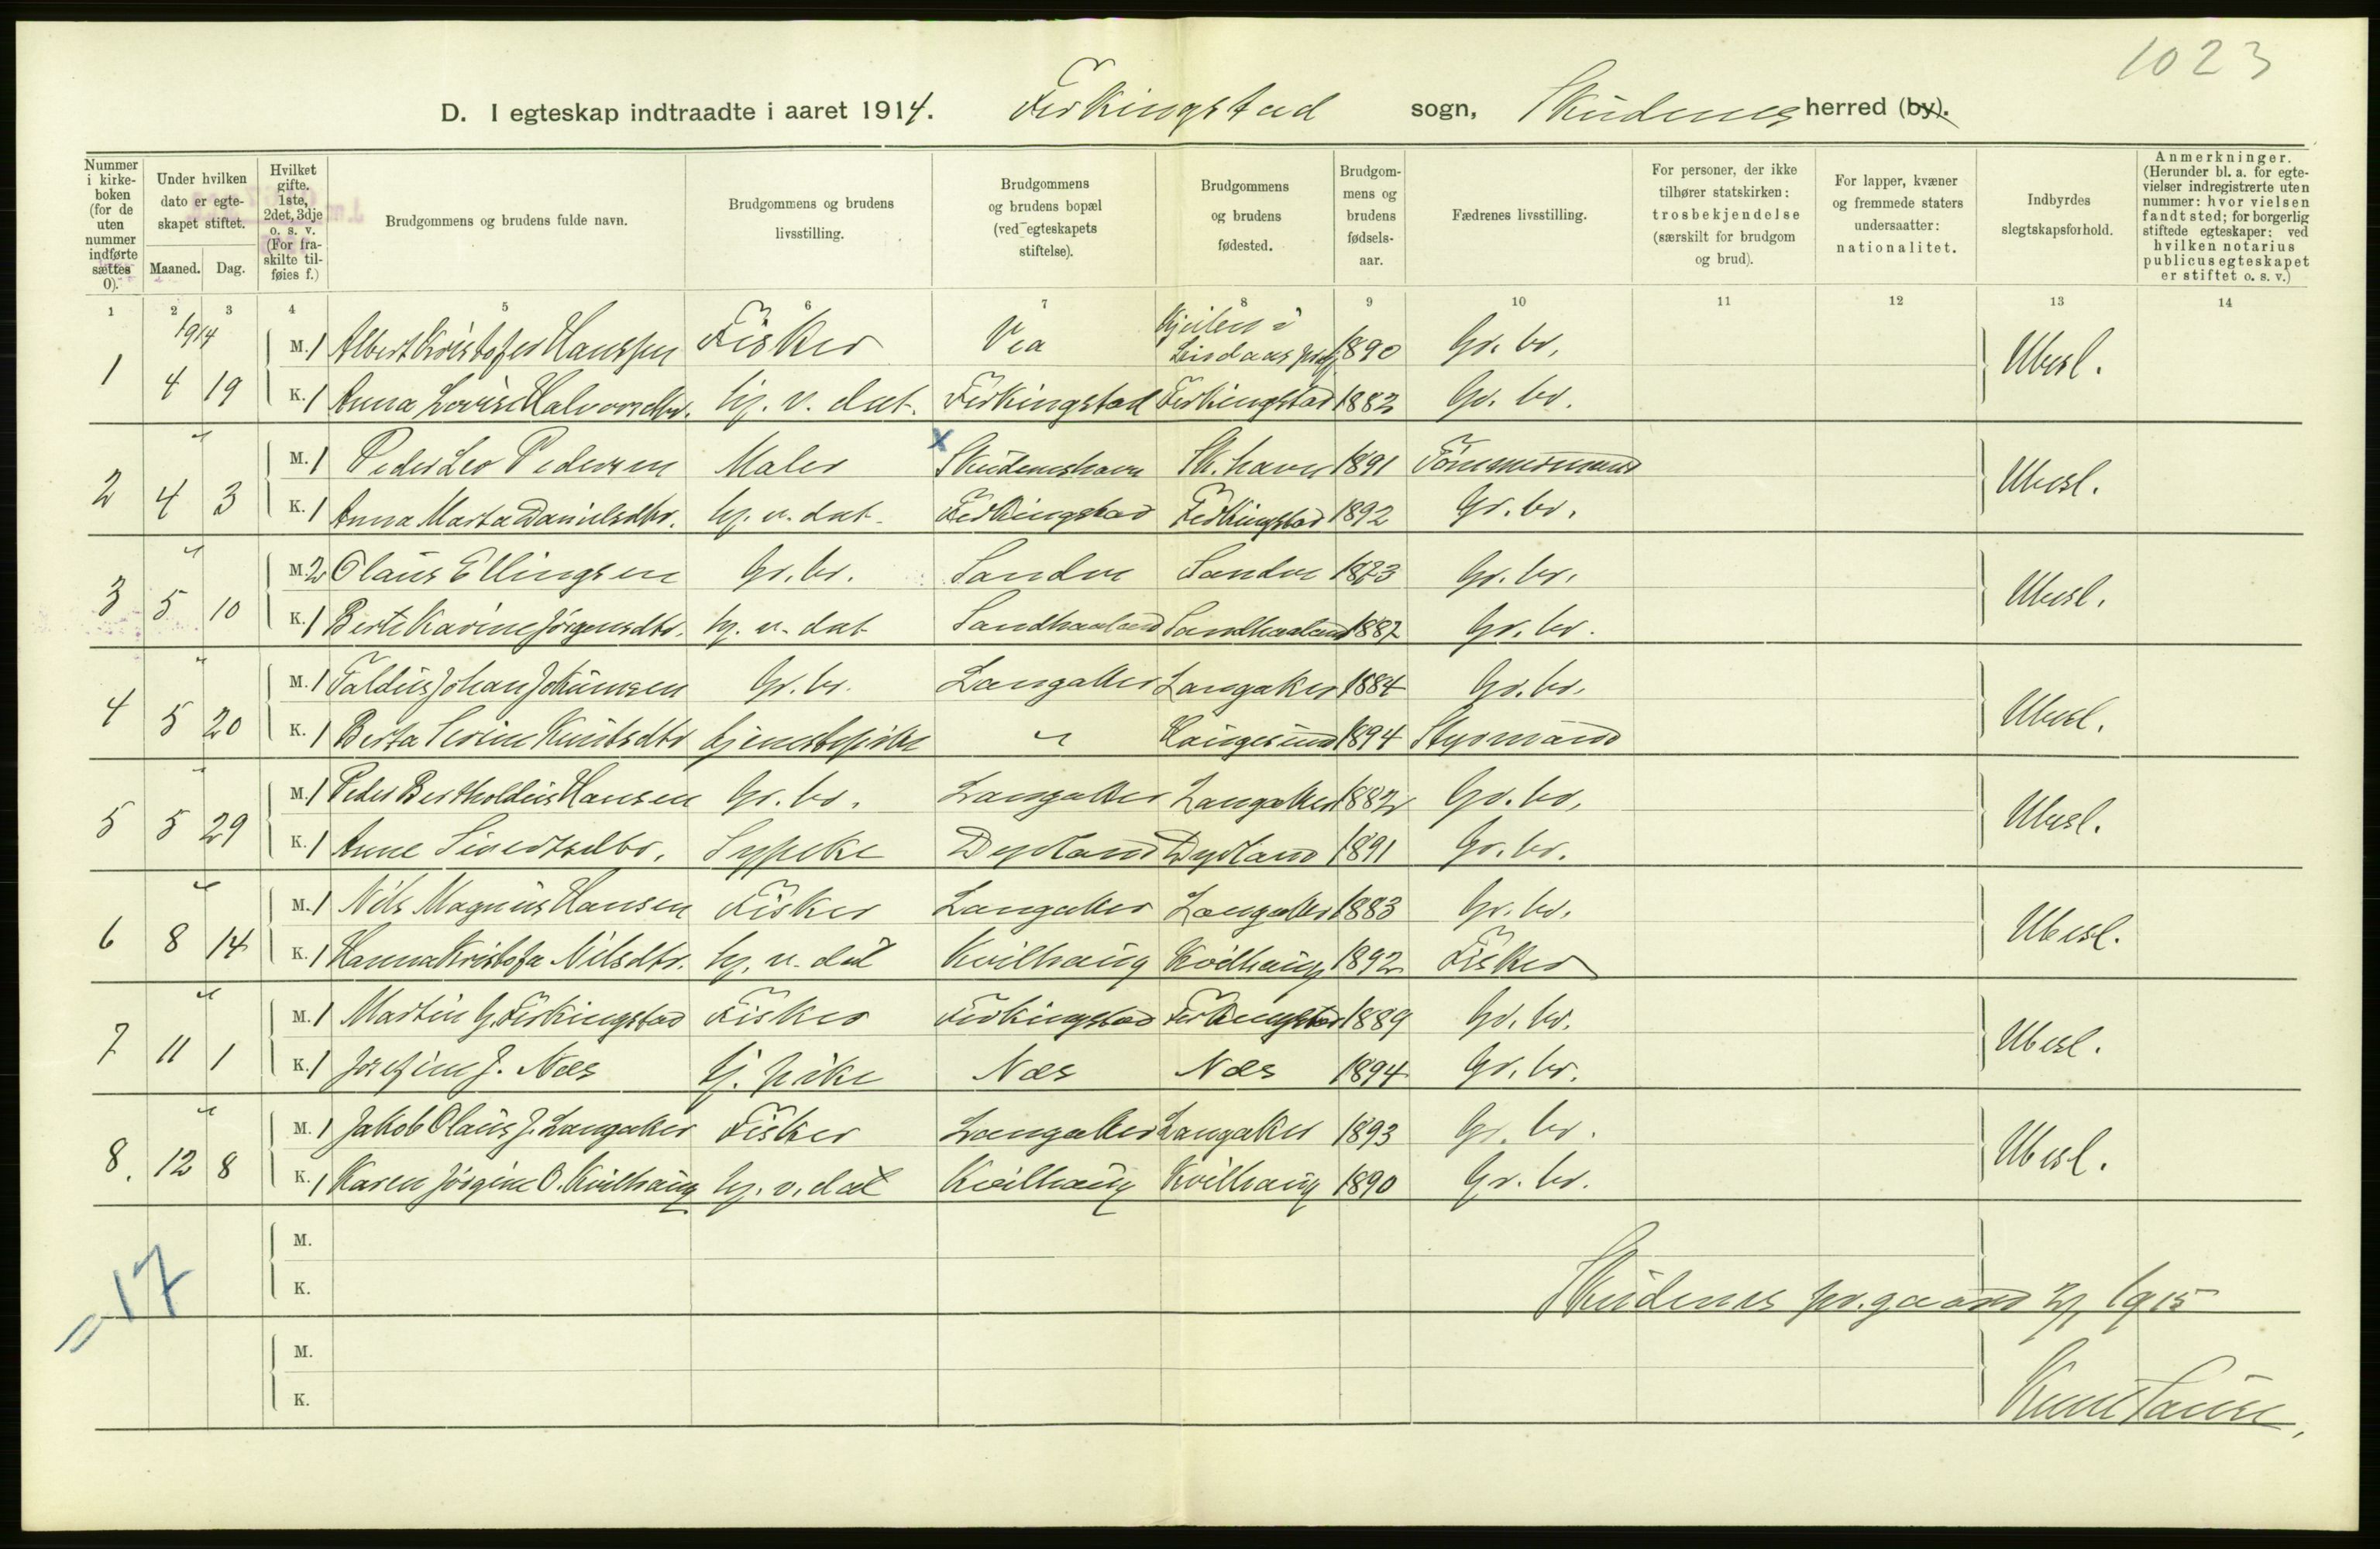 1023
D. I egteskap indtraadte i aaret 1914. Ferkingstad sogn, Skudenes herred (by).
Nummer i kirkeboken (for de uten nummer indførte sættes 0).
Under hvilken dato er egteskapet stiftet.
Maaned. Dag.
Hvilket gifte. 1ste, 2det, 3dje o. s. v. (For fraskilte tilføies f.)
Brudgommens og brudens fulde navn.
Brudgommens og brudens livsstilling.
Brudgommens og brudens bopæl (ved egteskapets stiftelse).
Brudgommens og brudens fødested.
Brudgommens og brudens fødselsaar.
Fædrenes livsstilling.
For personer, der ikke tilhører statskirken: trosbekjendelse (særskilt for brudgom og brud).
For lapper, kvæner og fremmede staters undersaatter: nationalitet.
Indbyrdes slegtskapsforhold.
Anmerkninger. (Herunder bl. a. for egtevielser indregistrerte uten nummer: hvor vielsen fandt sted; for borgerlig stiftede egteskaper: ved hvilken notarius publicus egteskapet er stiftet o. s. v.)
1 2 3 4 5 6 7 8 9 10 11 12 13 14
1914
1 4 19 M. 1 Albert Kristofer Hanssen Fisker Vea Kjeilen i Lindaas prgj 1890 Gr. br. Ubesl.
K. 1 Anna Lovise Halvorsdtr. hj. v. dat. Ferkingstad Ferkingstad 1882 Gr. br.
2 " 4 3 M. 1 Peder Leo Pedersen Maler x Skudeneshavn Sk. havn 1891 Tømmermand Ubesl.
K. 1 Anna Marta Danielsdtr. hj. v. dat. Ferkingstad Ferkingstad 1892 Gr. br.
3 " 5 10 M. 2 Olaus Ellingsen Gr. br. Sandve Sandve 1873 Gr. br. Ubesl.
K. 1 Berte Karine Jørgensdtr. hj. v. dat Sandhaaland Sandhaaland 1887 Gr. br.
4 " 5 20 M. 1 Johan Gr. br. Langaker Langaker 1884 Gr. br. Ubesl.
K. 1 Berta Serine Knutsdtr tjenestepike " Haugesund 1894 Styrmand
5 " 5 29 M. 1 Peder Bertholdeus Hansen Gr. br. Langaker Langaker 1882 Gr. br. Ubesl.
K. 1 Anne Sivertsdtr. Sypike Dyrland Dyrland 1891 Gr. br.
6 " 8 14 M. 1 Nils Magnus Hansen Fisker Langaker Langaker 1883 Gr. br. Ubesl.
K. 1 Hanna Kristofa Nilsdtr. hj. v. dat Kvilhaug Kvilhaug 1892 Fisker
7 " 11 1 M. 1 Martin G. Ferkingstad Fisker Ferkingstad Ferkingstad 1889 Gr. br. Ubesl.
K. 1 Josefine J. Næs tj. pike Næs Næs 1894 Gr. br.
8. " 12 8 M. 1 Jakob Olaus J. Langaker Fisker Langaker Langaker 1893 Gr. br. Ubesl.
K. 1 Karen Jørgine O. Kvilhaug hj. v. dat Kvilhaug Kvilhaug 1890 Gr. br.
M.
K.
= 17
Skudenes pr.gaard 1915
M.
K.